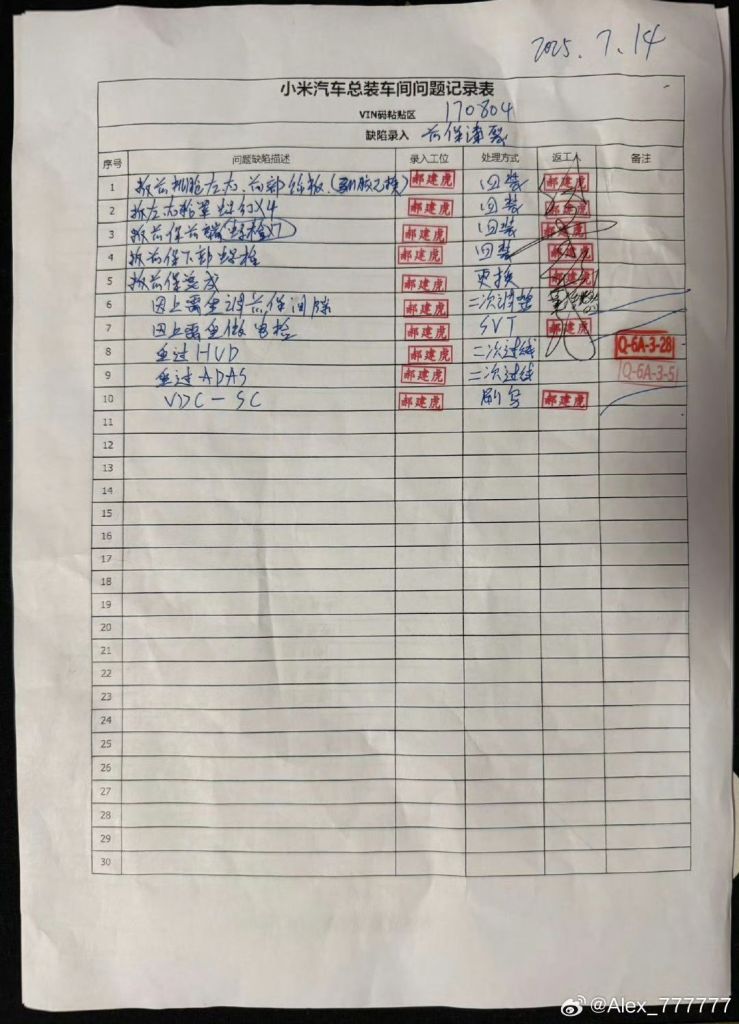 2025.7.14
小米汽车总装车间问题记录表
VIN码粘贴区 170804
缺陷录入 前保漆裂
序号 问题缺陷描述 录入工位 处理方式 返工人 备注
1 拆前机舱左右、前部饰板 郝建虎 回装 郝建虎
2 拆左右轮罩螺钉X4 郝建虎 回装 郝建虎
3 拆前保前端(螺栓X7) 郝建虎 回装 郝建虎
4 拆前保下部螺栓 郝建虎 回装 郝建虎
5 拆前保总成 郝建虎 更换 郝建虎
6 因上需重调前保间隙 郝建虎 二次调整
7 因上需重做电检 郝建虎 SVT 郝建虎
8 重过HUD 郝建虎 二次过线 Q-6A-3-28
9 重过ADAS 郝建虎 二次过线 Q-6A-3-5
10 VDC-SC 郝建虎 刷写 郝建虎
11
12
13
14
15
16
17
18
19
20
21
22
23
24
25
26
27
28
29
30
@Alex_777777